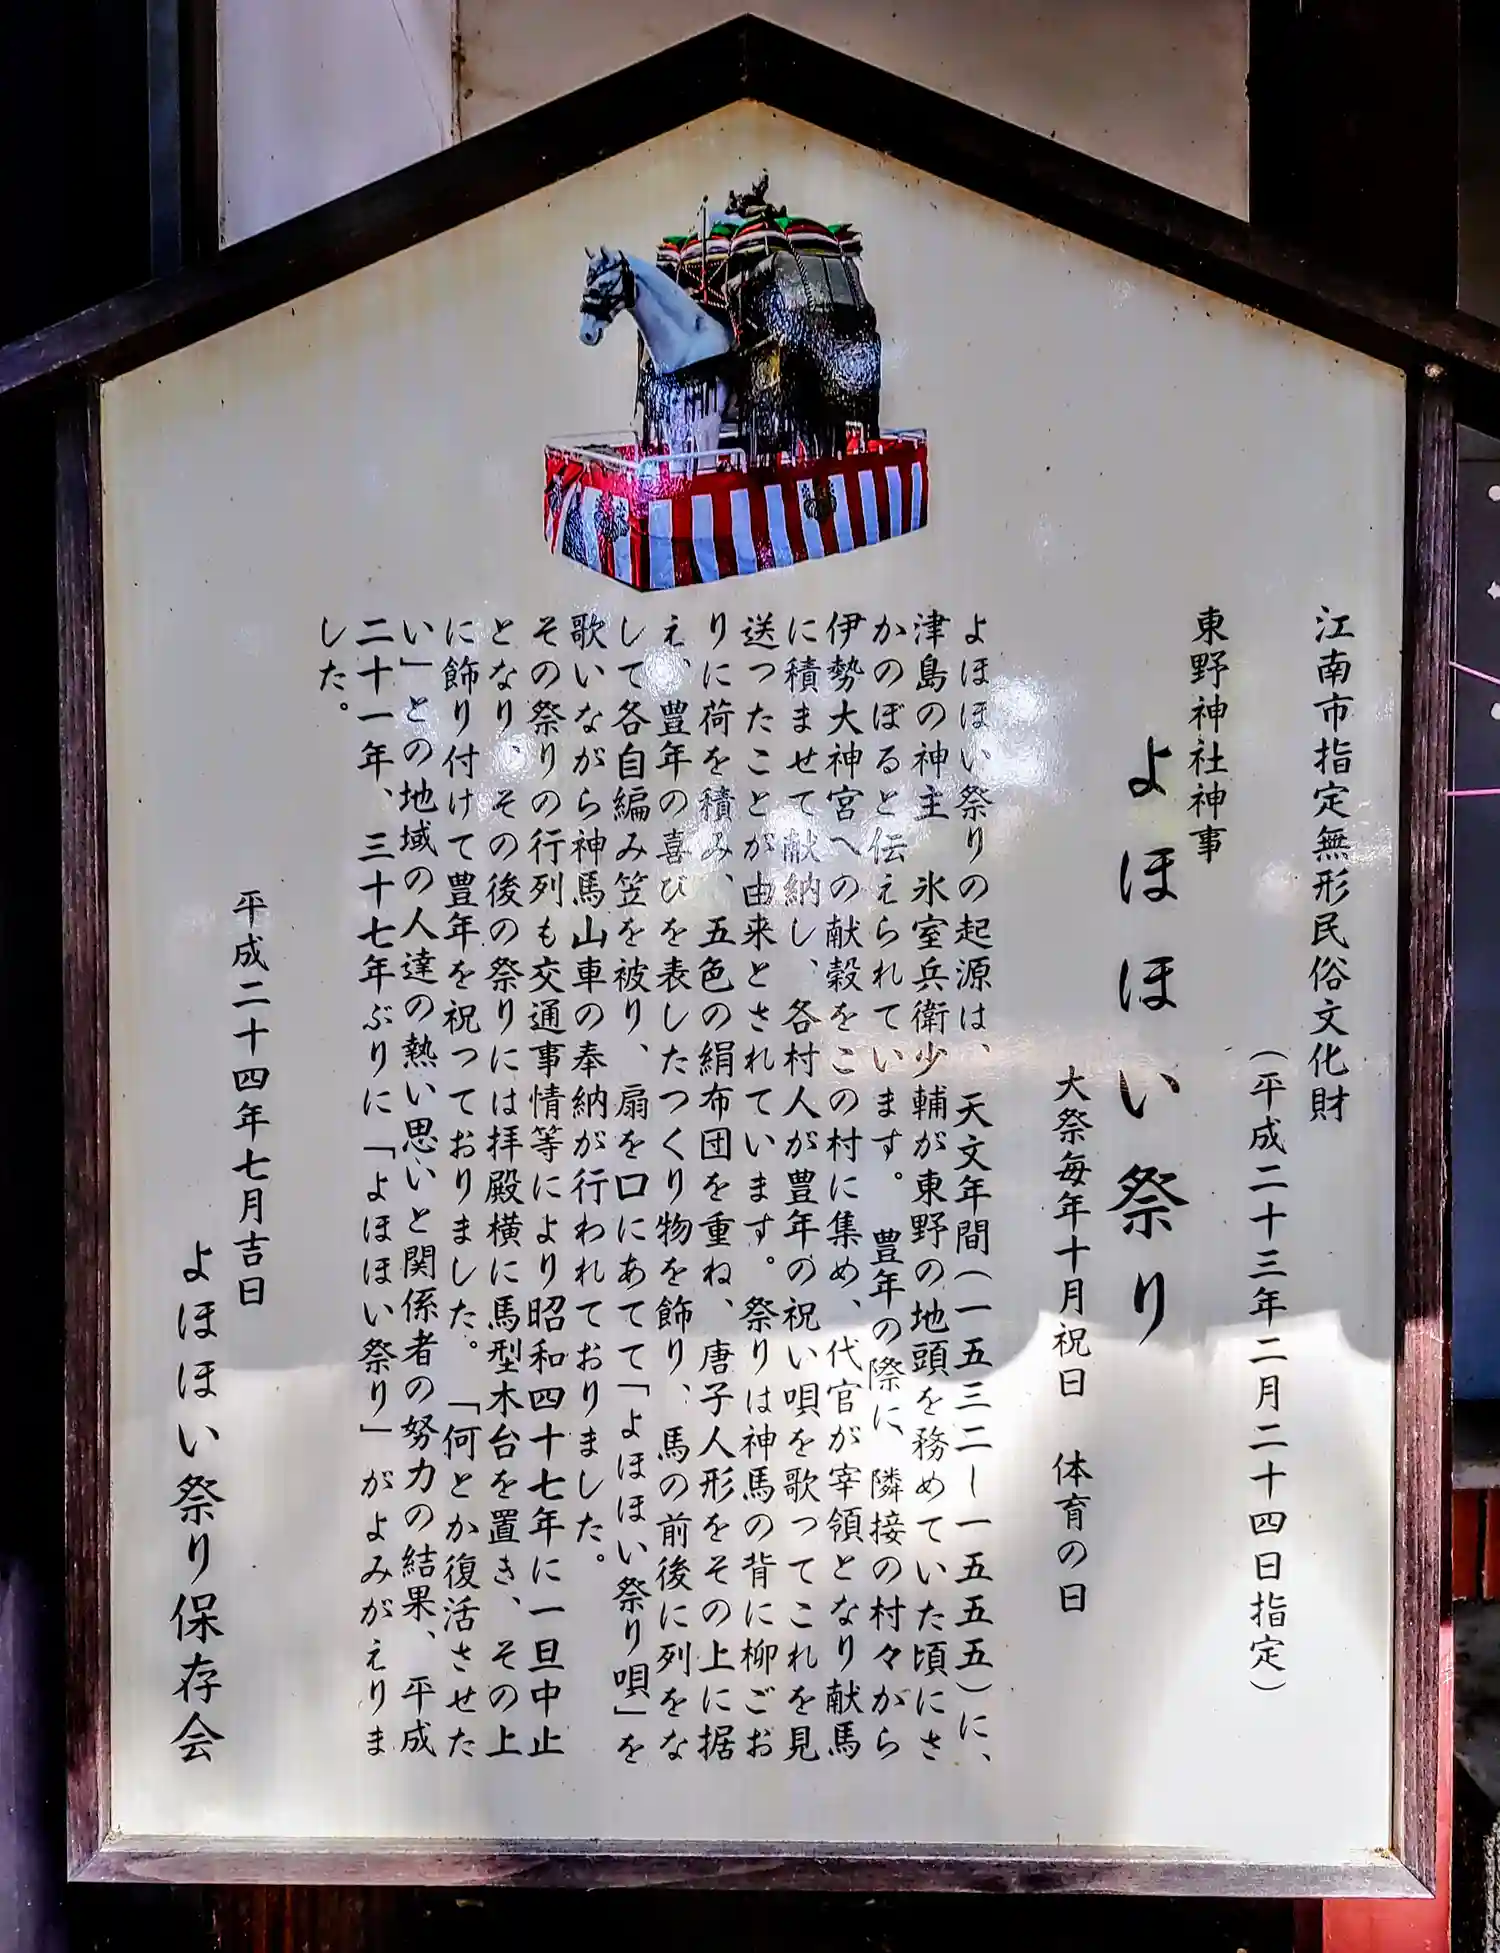 江南市指定無形民俗文化財
（平成二十三年二月二十四日指定）
東野神社神事
よほほい祭り
大祭毎年十月祝日　体育の日
よほほい祭りの起源は、天文年間（一五三二ー一五五五）に、
津島の神主　氷室兵衛少輔が東野の地頭を務めていた頃にさ
かのぼると伝えられています。豊年の際に、隣接の村々がら
伊勢大神宮への献穀をこの村に集め、代官が宰領となり献馬
に積ませて献納し、各村人が豊年の祝い唄を歌ってこれを見
送ったことが由来とされています。祭りは神馬の背に柳ごお
りに荷を積み、五色の絹布団を重ね、唐子人形をその上に据
え、豊年の喜びを表したつくり物を飾り、馬の前後に列をな
して各自編み笠を被り、扇を口にあてて「よほほい祭り唄」を
歌いながら神馬山車の奉納が行われておりました。
その祭りの行列も交通事情等により昭和四十七年に一旦中止
となり、その後の祭りには拝殿横に馬型木台を置き、その上
に飾り付けて豊年を祝っておりました。「何とか復活させた
い」との地域の人達の熱い思いと関係者の努力の結果、平成
二十一年、三十七年ぶりに「よほほい祭り」がよみがえりま
した。
平成二十四年七月吉日
よほほい祭り保存会